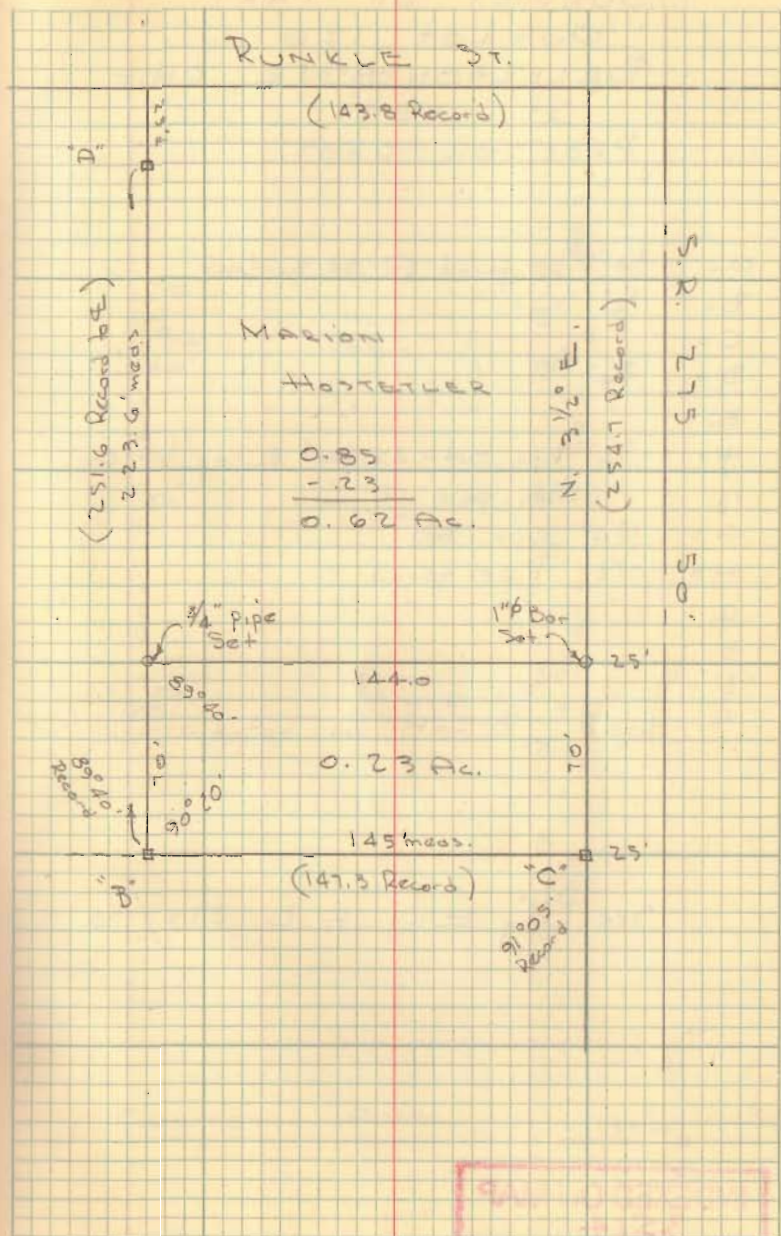 RUNKLE ST.
(143.8 Record)
"D"
(251.6 Record to ℄)
223.6' meas
MARION
HOSTETLER
0.85
- .23
0.62 Ac.
N. 3 1/2° E.
(254.7 Record)
S.R. 275
50'
3/4" Pipe
Set
1"ø Bar
Set
144.0
25'
70'
0.23 Ac.
70'
89° 40'
Record
90° 20'
145' meas.
25'
(147.3 Record)
"B"
"C"
91° 05'
Record